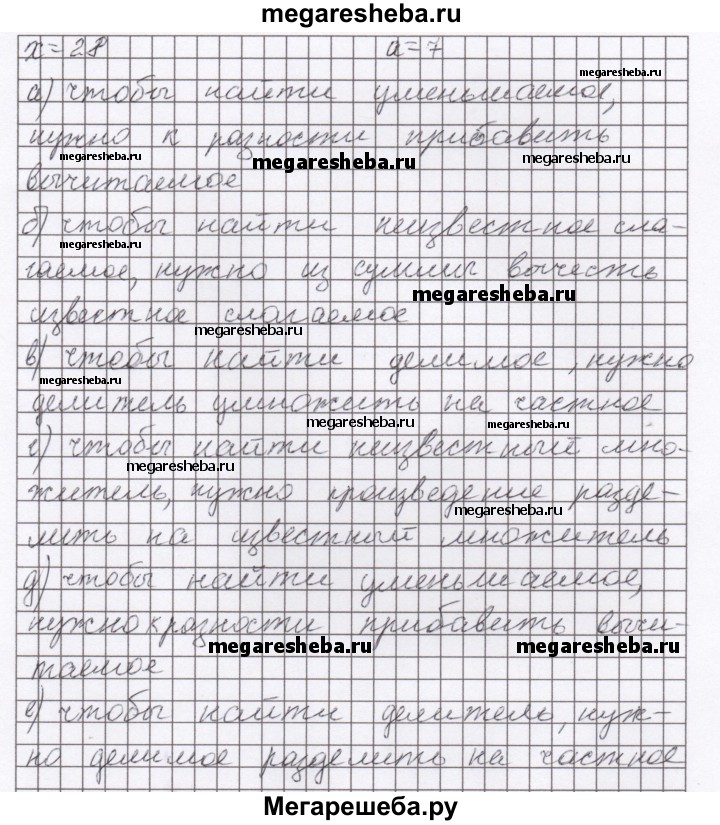 megaresheba.ru
x=28 a=7
megaresheba.ru
а) чтобы найти уменьшаемое,
нужно к разности прибавить
megaresheba.ru megaresheba.ru megaresheba.ru
вычитаемое
б) чтобы найти неизвестное сла-
megaresheba.ru
гаемое, нужно из суммы вычесть
megaresheba.ru
известное слагаемое
megaresheba.ru
в) чтобы найти делимое, нужно
megaresheba.ru
делитель умножить на частное
megaresheba.ru megaresheba.ru
г) чтобы найти неизвестный мно-
megaresheba.ru
житель, нужно произведение разде-
megaresheba.ru
лить на известный множитель
д) чтобы найти уменьшаемое,
нужно к разности прибавить вычи-
megaresheba.ru megaresheba.ru
таемое
е) чтобы найти делитель, нуж-
но делимое разделить на частное
Мегарешеба.ру